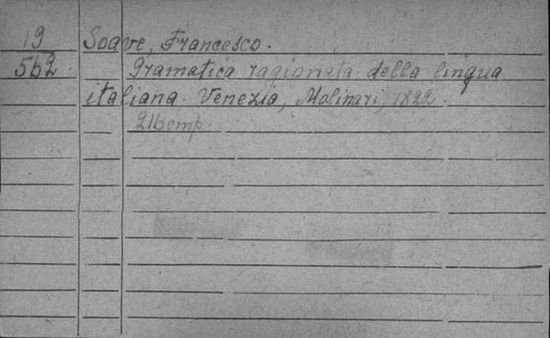 19 Soave, Francesco.
562 Gramatica ragionata della lingua
italiana. Venezia, Molinari, 1822.
216 стр.